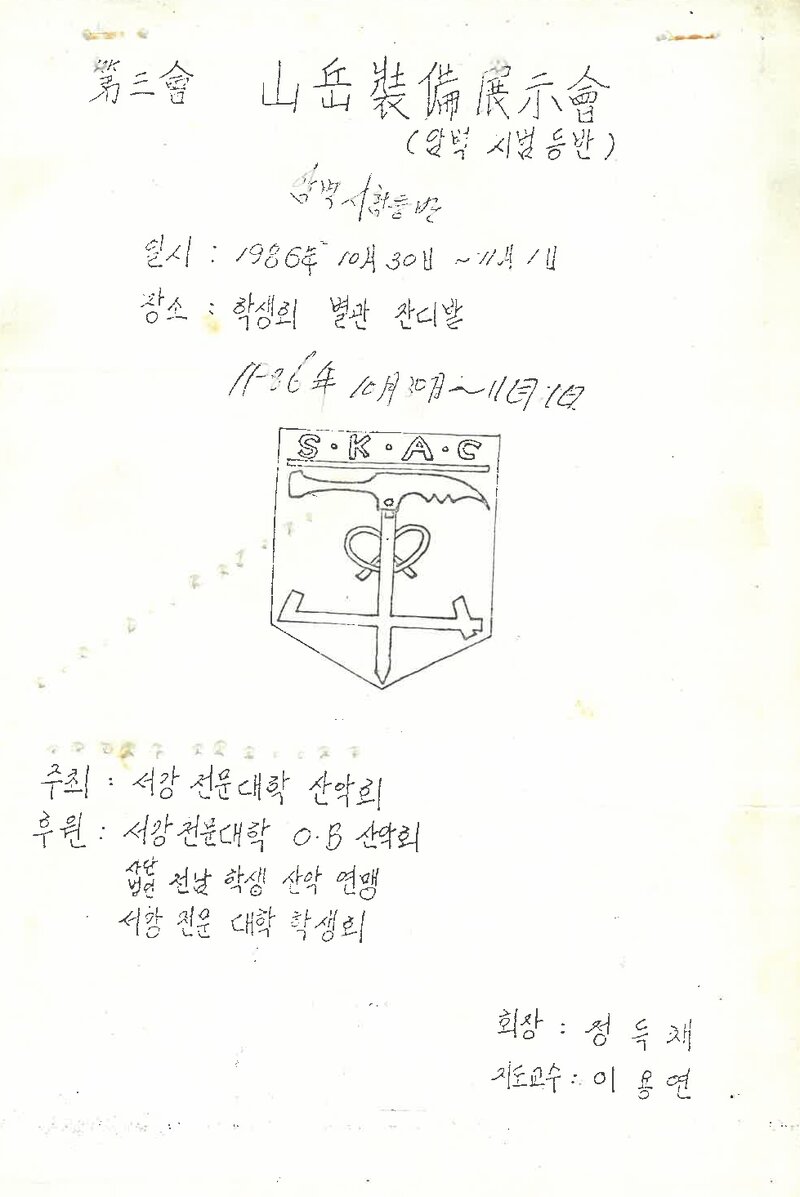 第三會 山岳裝備展示會
(암벽 시범등반)
암벽시범등반
일시 : 1986年 10月 30日 ~ 11月 1日
장소 : 학생회 별관 잔디밭
1986年 10月 30日 ~ 11月 1日
S·K·A·C
주최 : 서강 전문대학 산악회
후원 : 서강전문대학 O·B 산악회
사단법인 전남 학생 산악 연맹
서강 전문 대학 학생회
회장 : 정득재
지도교수 : 이용연